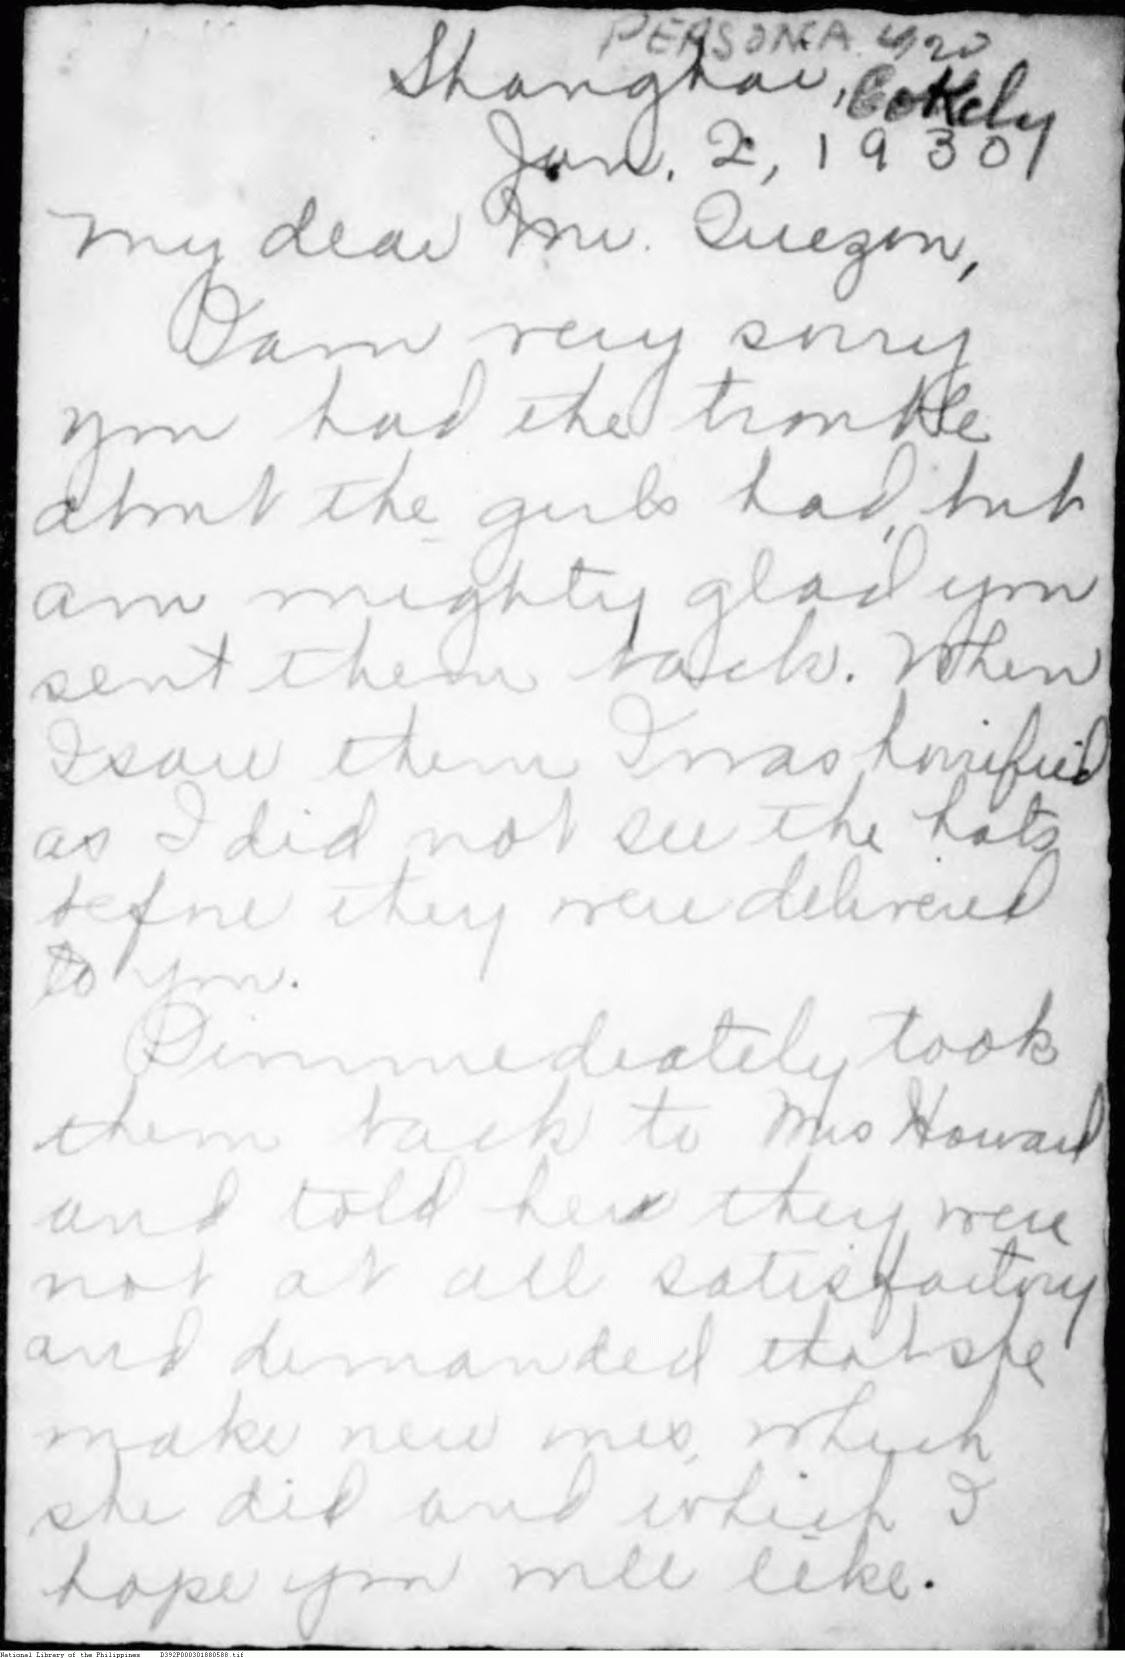 PERSONA
Shanghai, Cokely
Jan. 2, 1930
My dear Mr. Quezon,
I am very sorry
you had the trouble
about the girls had, but
am mighty glad you
sent them back. When
I saw them I was horrified
as I did not see the hats
before they were delivered
to you.
I immediately took
them back to Mrs Howard
and told her they were
not at all satisfactory
and demanded that she
make new ones, which
she did and which I
hope you will like.
National Library of the Philippines D392P000301880588.tif